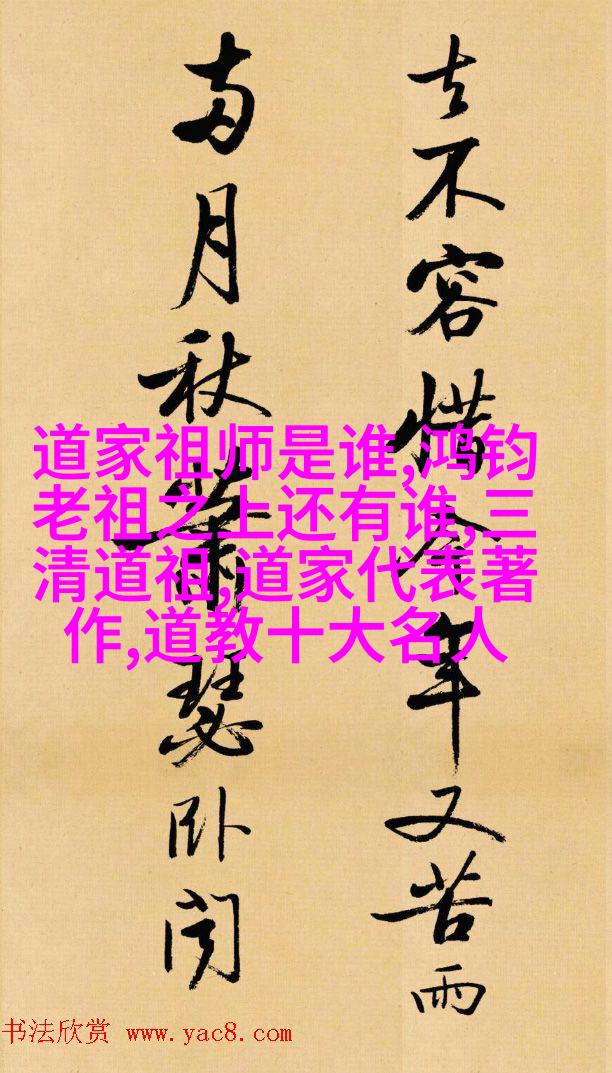 去不容惜今年又苦雨
兩月秋蕭瑟卧聞
道家祖师是谁,鸿钧
老祖之上还有谁,三
清道祖,道家代表著
作,道教十大名人
书法欣赏 www.yac8.com